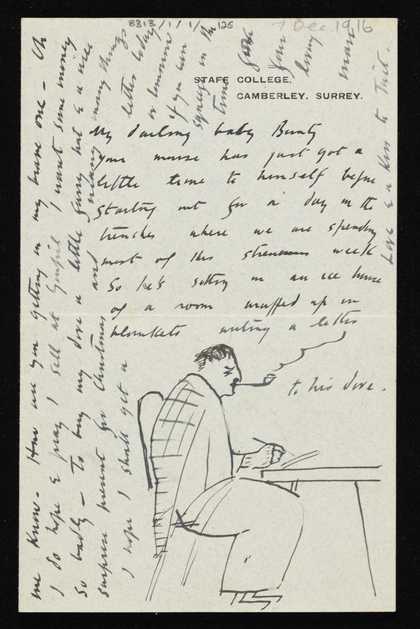 8313/1/1/ 125
7 Dec 1916
STAFF COLLEGE,
CAMBERLEY, SURREY.
My darling baby Bunty
Your mouse has just got a
little time to himself before
starting out for a day in the
trenches where we are spending
most of this strenuous week
So he's sitting in an ice house
of a room wrapped up in
blankets writing a letter
to his dove.
I hope I shall get a
letter today
or tomorrow
if you can
squeeze in the
time
your
loving
mouse
Love & a Kiss to
me know - How are you getting on my brave one - Oh
I do hope & pray I sell at I want some money
so badly - To buy my dove a little furry hat & a nice
surprise present for Christmas and many many things